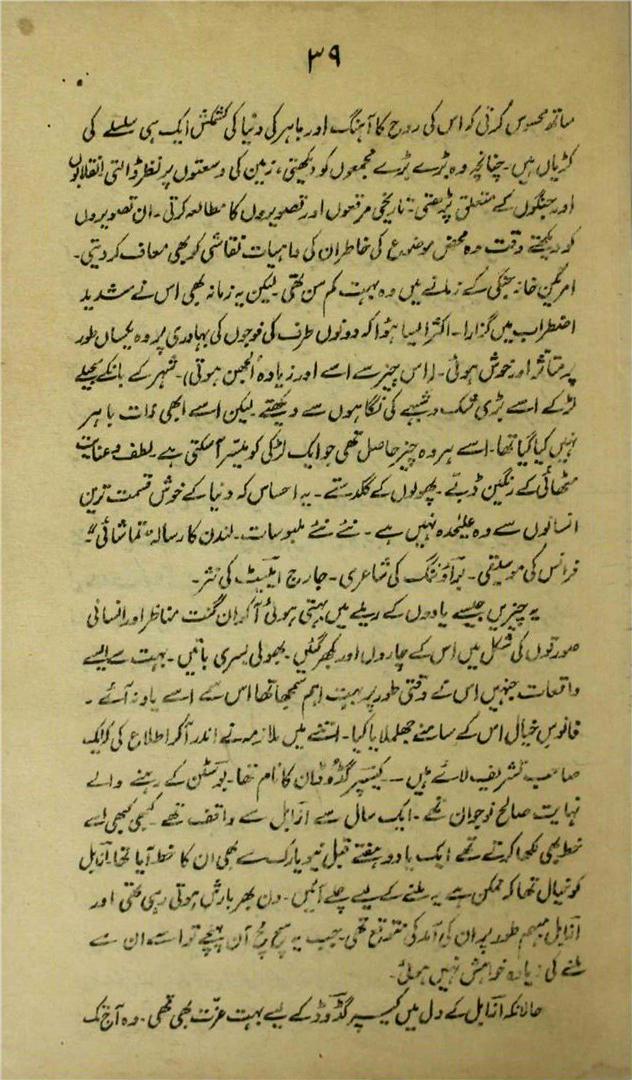 ۳۹
ساتھ محسوس کرتی کہ اس کی روح کا آہنگ اور باہر کی دنیا کی کشمکش ایک ہی سلسلے کی
کڑیاں ہیں۔ چنانچہ وہ بڑے بڑے مجمعوں کو دیکھتی، زمین کی وسعتوں پر نظر ڈالتی انقلابوں
اور جنگوں کے متعلق پڑھتی۔ تاریخی مرقعوں اور تصویروں کا مطالعہ کرتی۔ ان تصویروں
کو دیکھتے وقت وہ محض موضوع کی خاطر ان کی ماہیات نقاشی کو بھی معاف کر دیتی۔
امریکن خانہ جنگی کے زمانے میں وہ بہت کم سن تھی لیکن یہ زمانہ بھی اس نے شدید
اضطراب میں گزارا۔ اکثر ایسا ہوا کہ دونوں طرف کی فوجوں کی بہادری پر وہ یکساں طور
پر متاثر اور خوش ہوئی۔ (اس چیز سے اسے اور زیادہ الجھن ہوتی)۔ شہر کے بانکے سجیلے
لڑکے اسے بڑی شک و شبہے کی نگاہوں سے دیکھتے لیکن اسے ابھی ذات باہر
نہیں کیا گیا تھا۔ اسے ہر وہ چیز حاصل تھی جو ایک لڑکی کو میسر آ سکتی ہے۔ لطف و عنایت
مٹھائی کے رنگین ڈبے۔ پھولوں کے گلدستے۔ یہ احساس کہ دنیا کے خوش قسمت ترین
انسانوں سے وہ علیٰحدہ نہیں ہے۔ نئے نئے ملبوسات۔ لندن کا رسالہ "تماشائی"۔
فرانس کی موسیقی۔ براؤننگ کی شاعری۔ جارج ایلیٹ کی نثر۔
یہ چیزیں جیسے یادوں کے ریلے میں بہتی ہوئی آ کر ان گنت مناظر اور انسانی
صورتوں کی شکل میں اس کے چاروں اور بکھر گئیں۔ بھولی بسری باتیں۔ بہت سے ایسے
واقعات جنہیں اس نے وقتی طور پر بہت اہم سمجھا تھا اس سے اسے یاد نہ آئے۔
فانوس خیال اس کے سامنے جھلملایا کیا۔ اتنے میں ملازمہ نے اندر آ کر اطلاع کی کہ ایک
صاحب تشریف لائے ہیں۔۔ کیسپر گڈوڈ ان کا نام تھا۔ بوسٹن کے رہنے والے
نہایت صالح نوجوان تھے۔ ایک سال سے ازابل سے واقف تھے کبھی کبھی اسے
خط بھی لکھا کرتے تھے ایک یا دو ہفتے قبل نیویارک سے بھی ان کا خط آیا تھا۔ ازابل
کو خیال تھا کہ ممکن ہے یہ ملنے کے لیے چلے آئیں۔ دن بھر بارش ہوتی رہی تھی اور
ازابل مبہم طور پر ان کی آمد کی متوقع تھی۔ جب یہ سچ مچ آن پہنچے تو اسے ان سے
ملنے کی زیادہ خواہش نہیں ہوئی۔
حالانکہ ازابل کے دل میں کیسپر گڈوڈ کے لیے بہت عزت بھی تھی۔ وہ آج تک